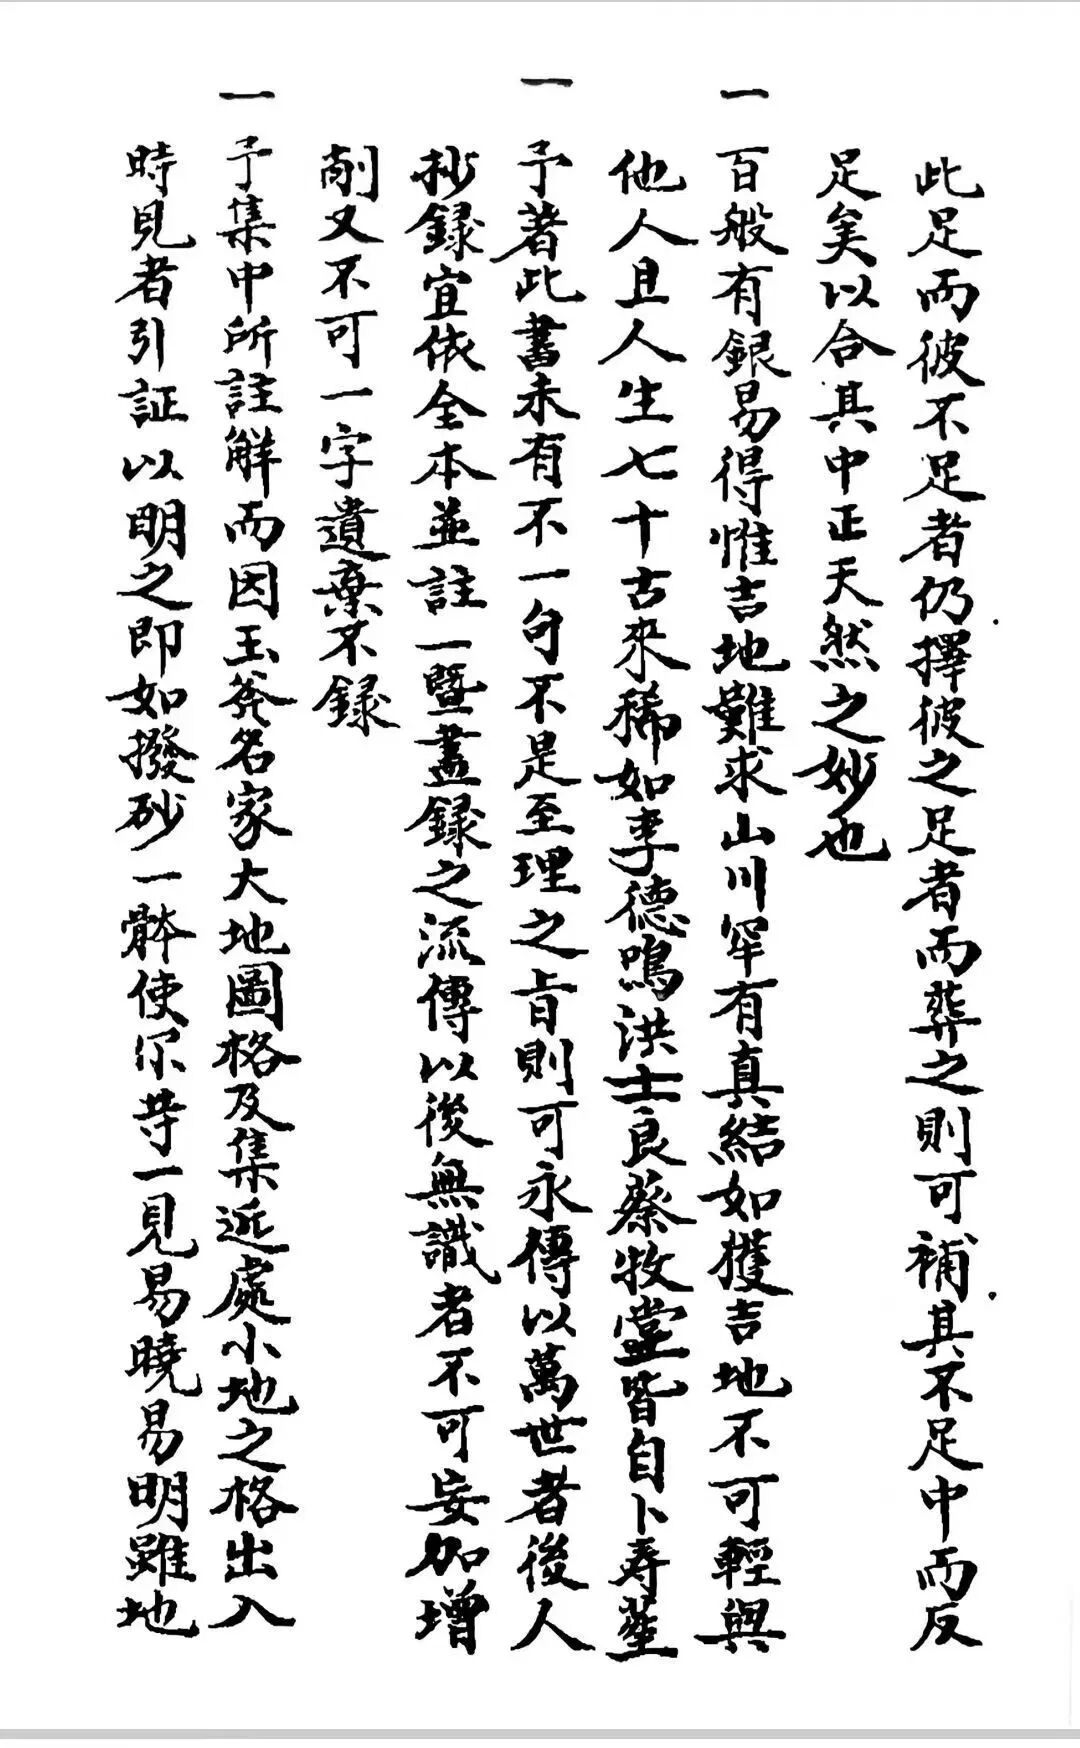 此足而彼不足者仍擇彼之足者而葬之則可補其不足中而反
足矣以合其中正天然之妙也
一百般有銀易得惟吉地難求山川罕有真結如獲吉地不可輕與
他人且人生七十古來稀如李德鳴洪士良蔡牧堂皆自卜寿塋
一予著此書未有不一句不是至理之旨則可永傳以萬世者後人
抄録宜依全本並註一暨盡録之流傳以後無識者不可妄加增
削又不可一字遺棄不録
一予集中所註解而因玉菴名家大地圖格及集近處小地之格出入
時見者引証以明之即如撥砂一骵使尔等一見易曉易明雖地